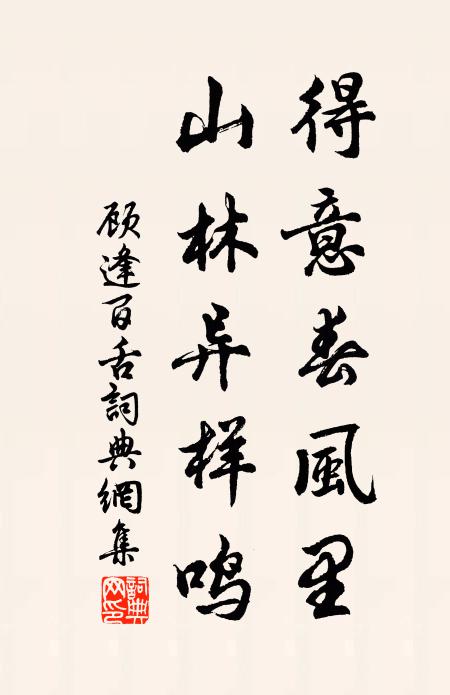 得意春風里
山林异样鸣
顾逢百舌詞典網集
詞典網印